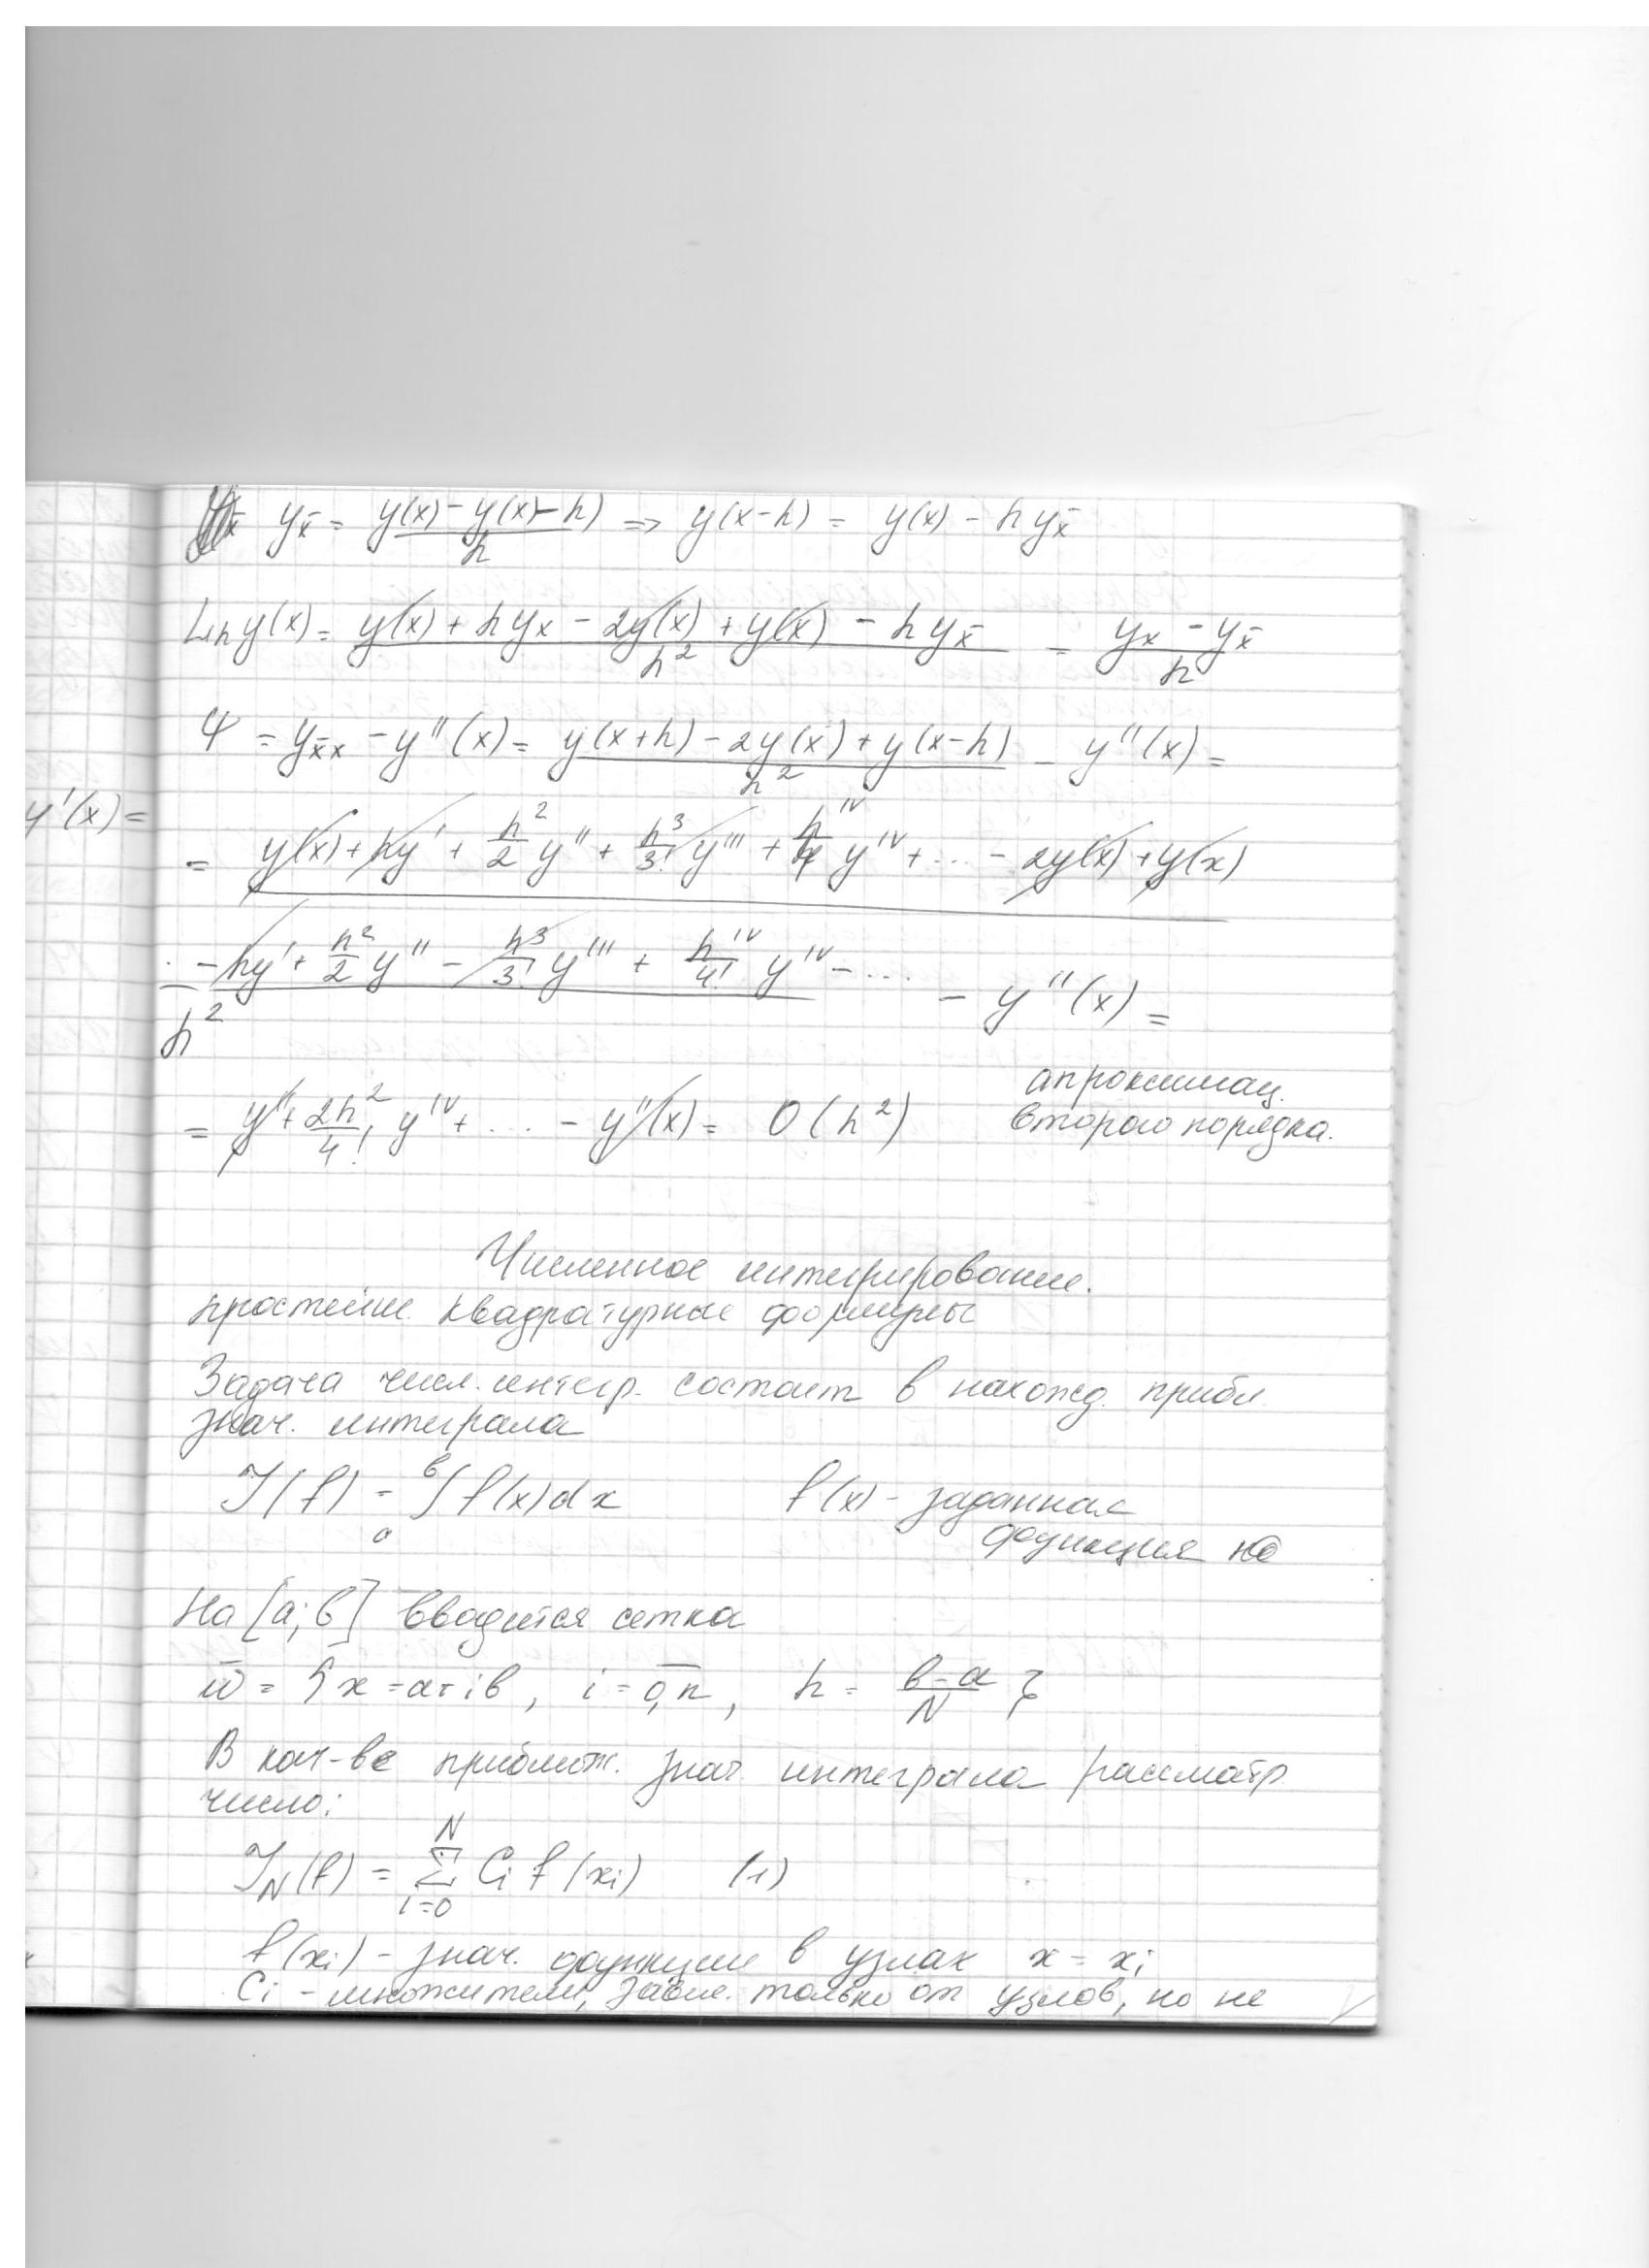 y_x̄ = (y(x) - y(x) - h)/h => y(x-h) = y(x) - h y_x̄
L_h y(x) = (y(x) + h y_x - 2y(x) + y(x) - h y_x̄)/h² = (y_x - y_x̄)/h
Ψ = y_x̄x - y''(x) = (y(x+h) - 2y(x) + y(x-h))/h² - y''(x) =
y'(x) =
= y(x) + hy' + h²/2 y'' + h³/3! y''' + h^IV/4 y^IV + ... - 2y(x) + y(x)
- hy' + h²/2 y'' - h³/3! y''' + h^IV/4! y^IV - ... / h² - y''(x) =
= y'' + 2h²/4! y^IV + ... - y''(x) = O(h²) апроксимац.
второго порядка.
Численное интегрирование.
простейш. квадратурные формулы
Задача числ. интегр. состоит в нахожд. прибл.
знач. интеграла
J(f) = ∫_a^b f(x)dx f(x) - заданная
функция на
На [a; b] вводится сетка
ω̄ = {x = a + ib, i = 0,n, h = (b-a)/N }
В кач-ве приближ. знач. интеграла рассматр.
число:
J_N(f) = Σ_{i=0}^N C_i f(x_i) (1)
f(x_i) - знач. функции в узлах x = x_i
C_i - множители, завис. только от узлов, но не